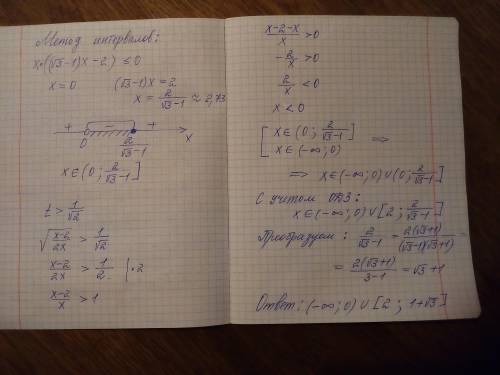 Метод интервалов:
x•((√3-1)x-2) ≤ 0
x=0 (√3-1)x=2
x = 2/(√3-1) ≈ 2,73
+ - +
0 2/(√3-1) x
x∈(0; 2/(√3-1)]
t > 1/√2
√((x-2)/2x) > 1/√2
(x-2)/2x > 1/2 |•2
(x-2)/x > 1
(x-2-x)/x > 0
-2/x > 0
2/x < 0
x < 0
[ x∈(0; 2/(√3-1)]
x∈(-∞; 0) ⇒
⇒ x∈(-∞; 0)∪(0; 2/(√3-1)]
С учетом ОДЗ:
x∈(-∞; 0)∪[2; 2/(√3-1)]
Преобразуем: 2/(√3-1) = 2(√3+1)/((√3-1)(√3+1)) =
= 2(√3+1)/(3-1) = √3+1
Ответ: (-∞; 0)∪[2; 1+√3]